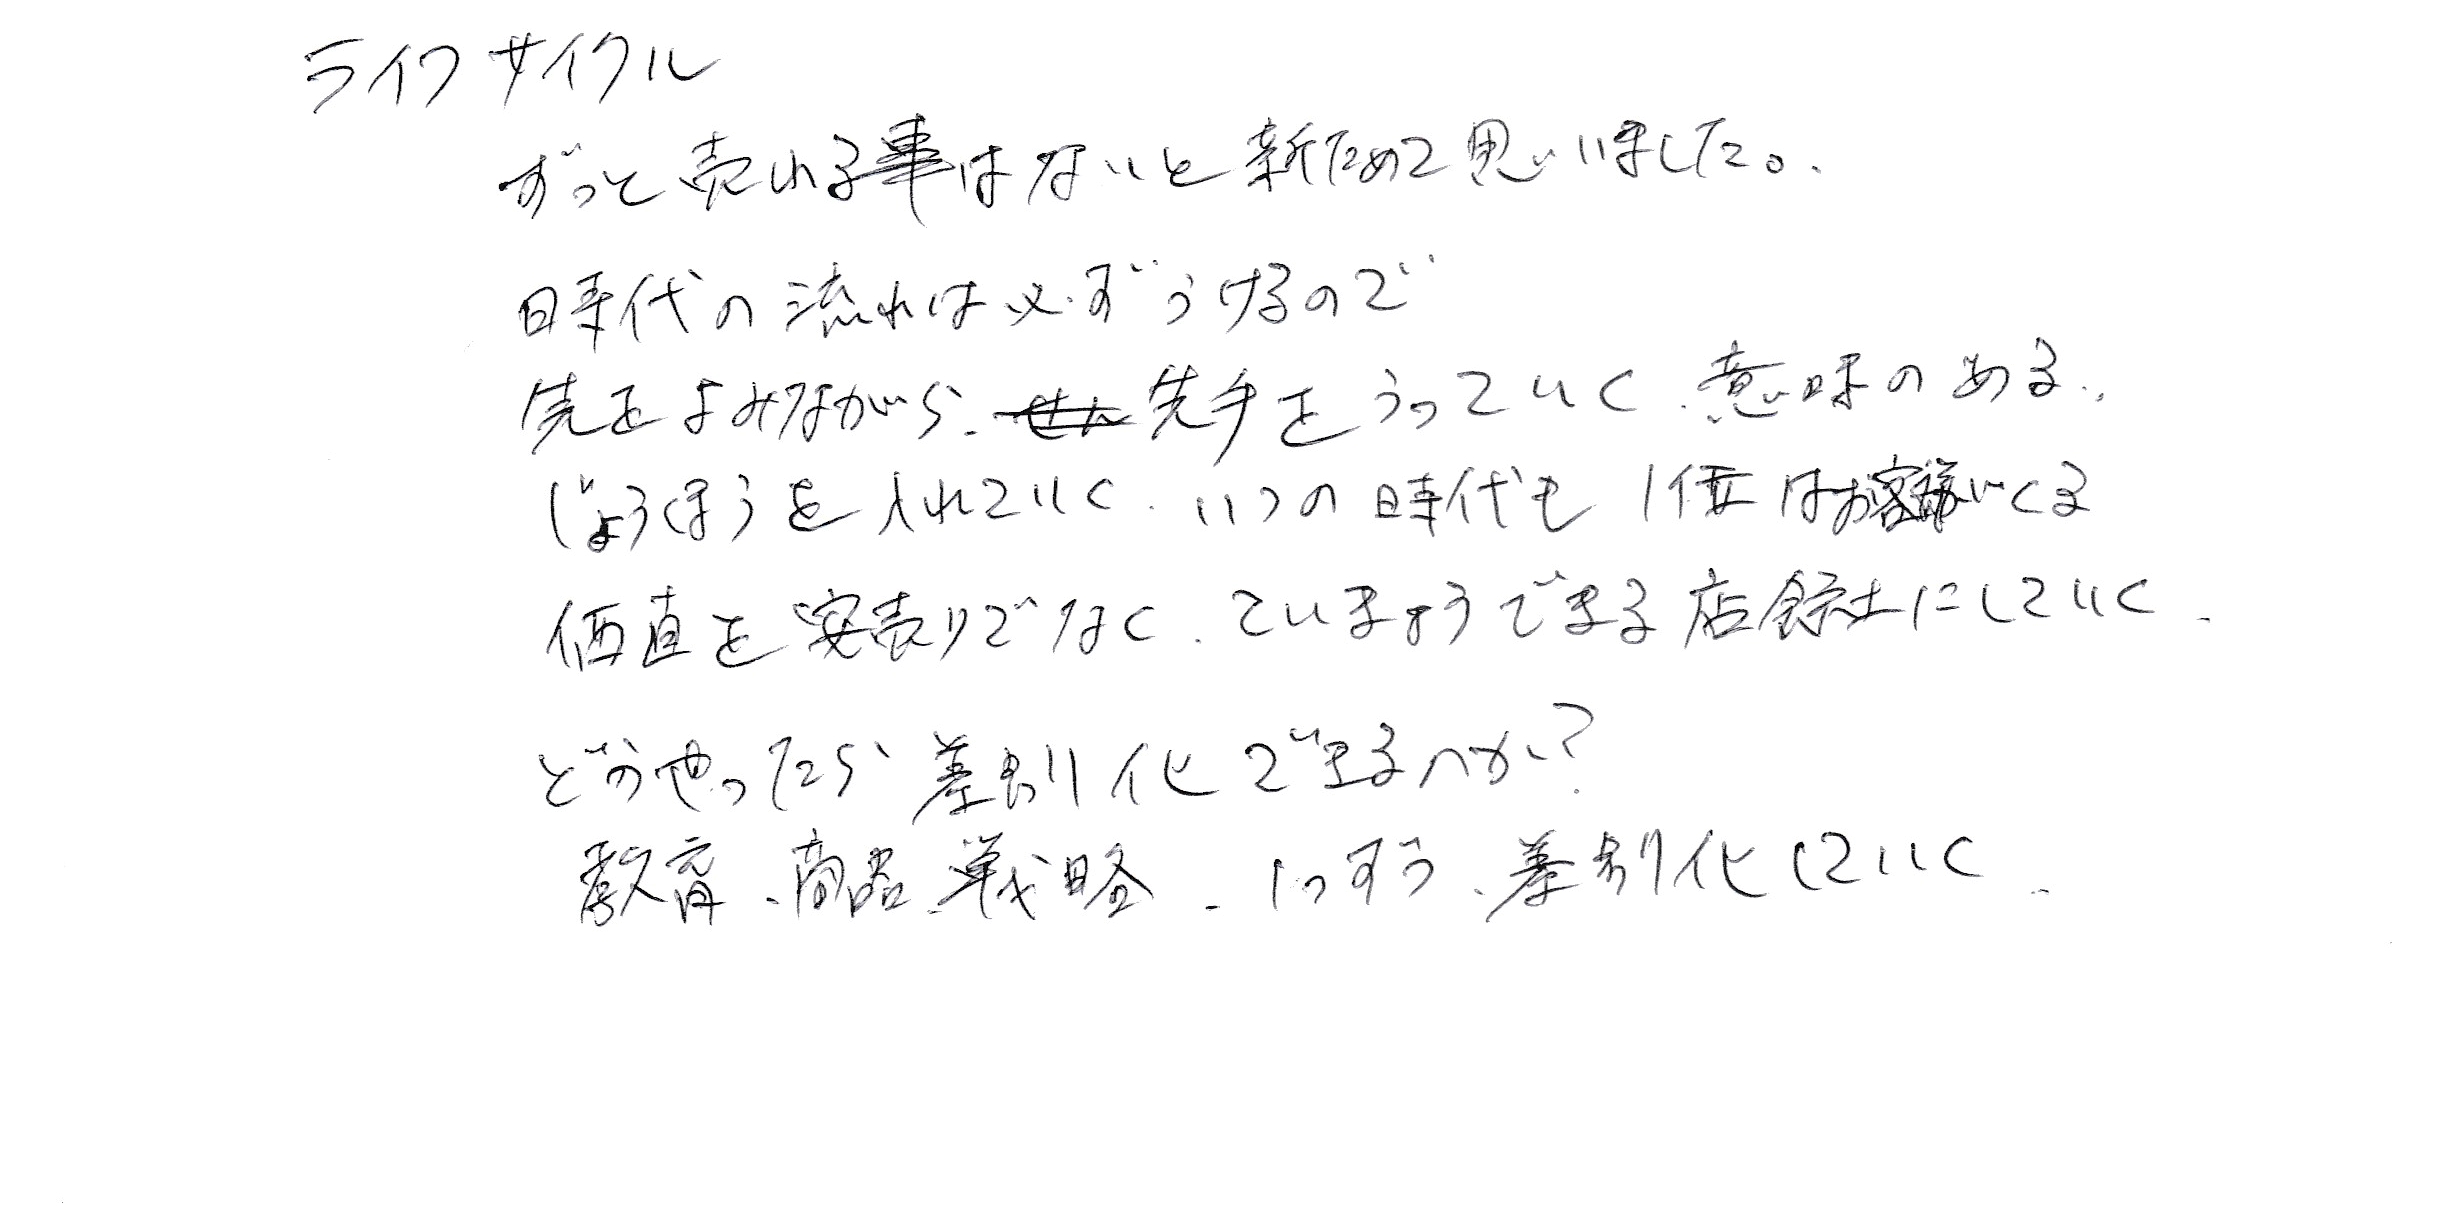 ライフサイクル
ずっと売れる事はないと新ためて思いました。
時代の流れは必ずうけるので
先をよみながら、先手をうっていく、意味のある、
じょうほうを入れていく、いつの時代も1位はお客様がくる
価値を安売りでなく、ていきょうできる店舗にしていく、
どうやったら差別化できるのか?
教育、商品、戦略、1つずつ、差別化していく、